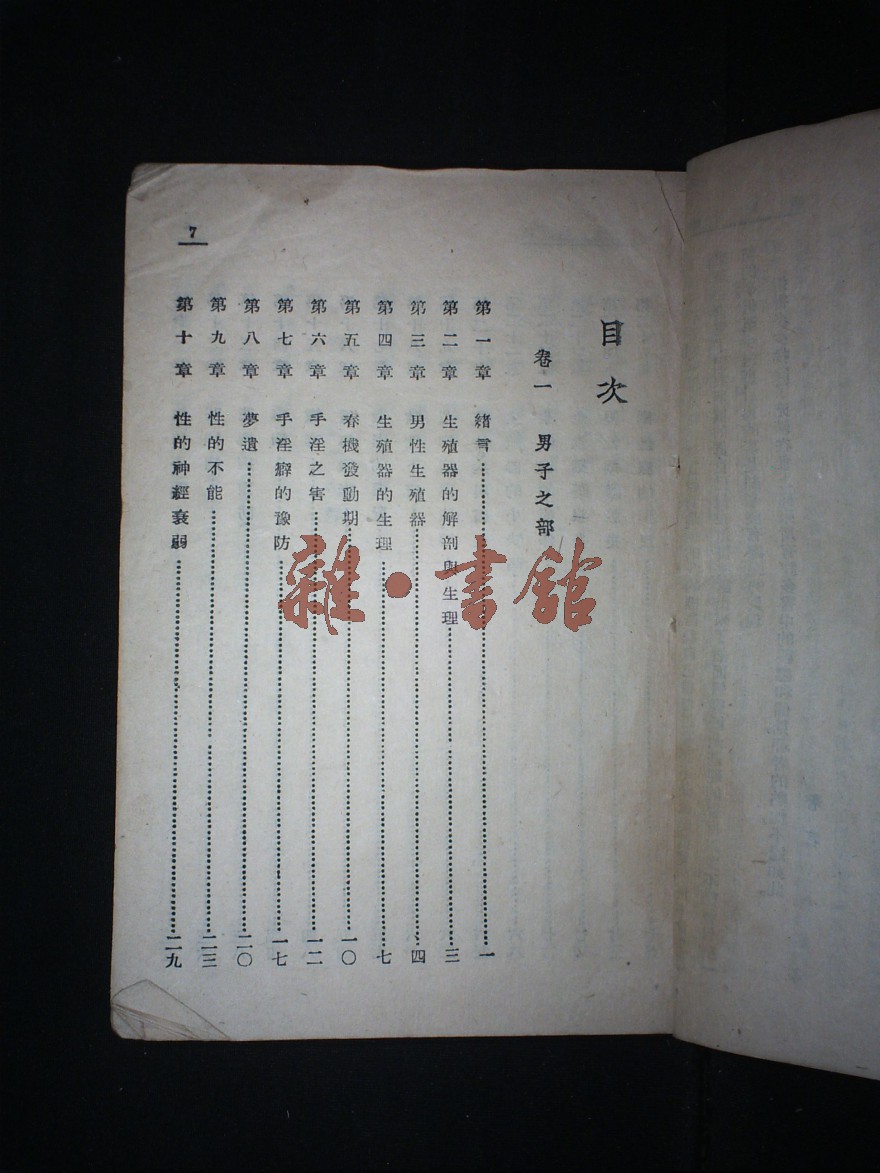 目次
卷一 男子之部
第一章 緒言 一
第二章 生殖器的解剖與生理 三
第三章 男性生殖器 四
第四章 生殖器的生理 七
第五章 春機發動期 一〇
第六章 手淫之害 一二
第七章 手淫癖的豫防 一七
第八章 夢遺 二〇
第九章 性的不能 二三
第十章 性的神經衰弱 二九
7
雜·書館